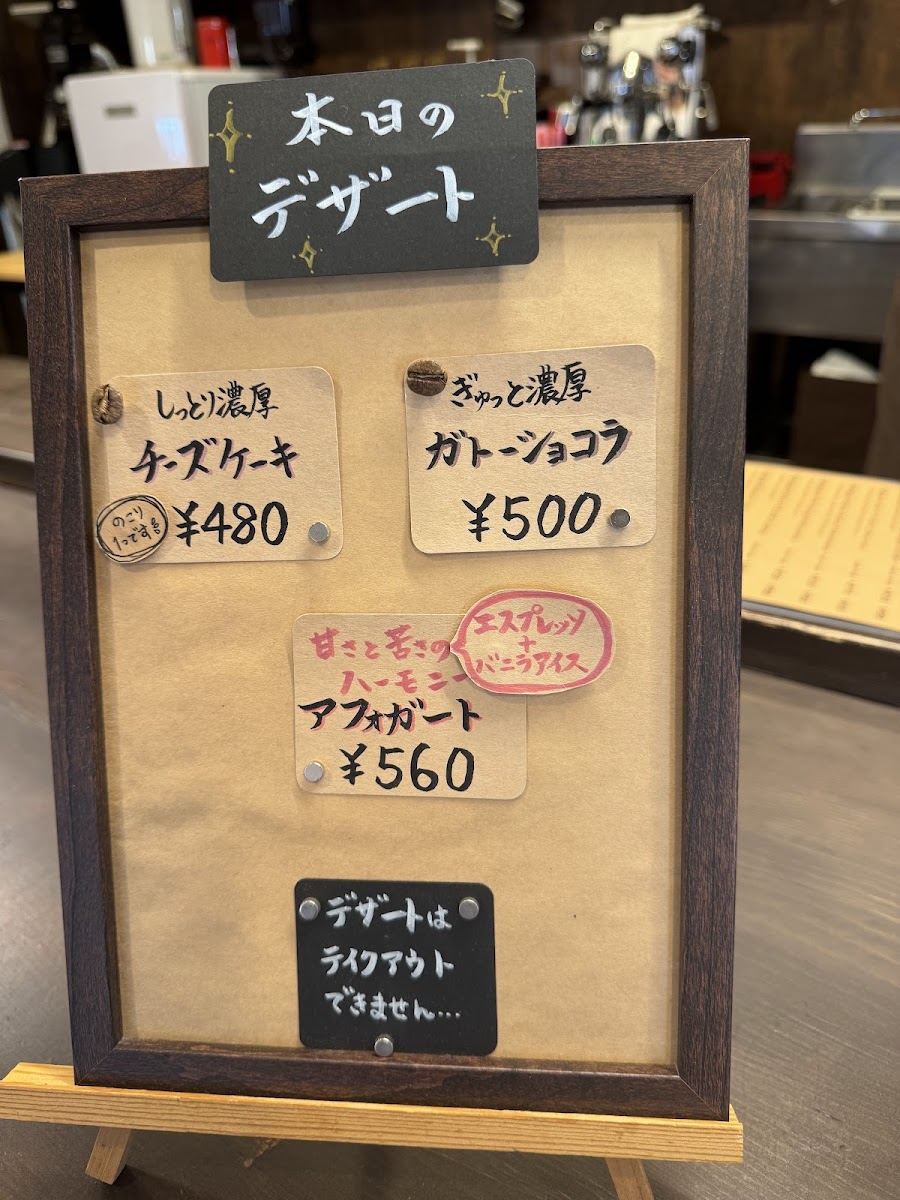 本日の
デザート
しっとり濃厚
チーズケーキ
のこり
1つです
¥480
ぎゅっと濃厚
ガトーショコラ
¥500
甘さと苦さの
ハーモニー
アフォガート
¥560
エスプレッソ
+
バニラアイス
デザートは
テイクアウト
できません…